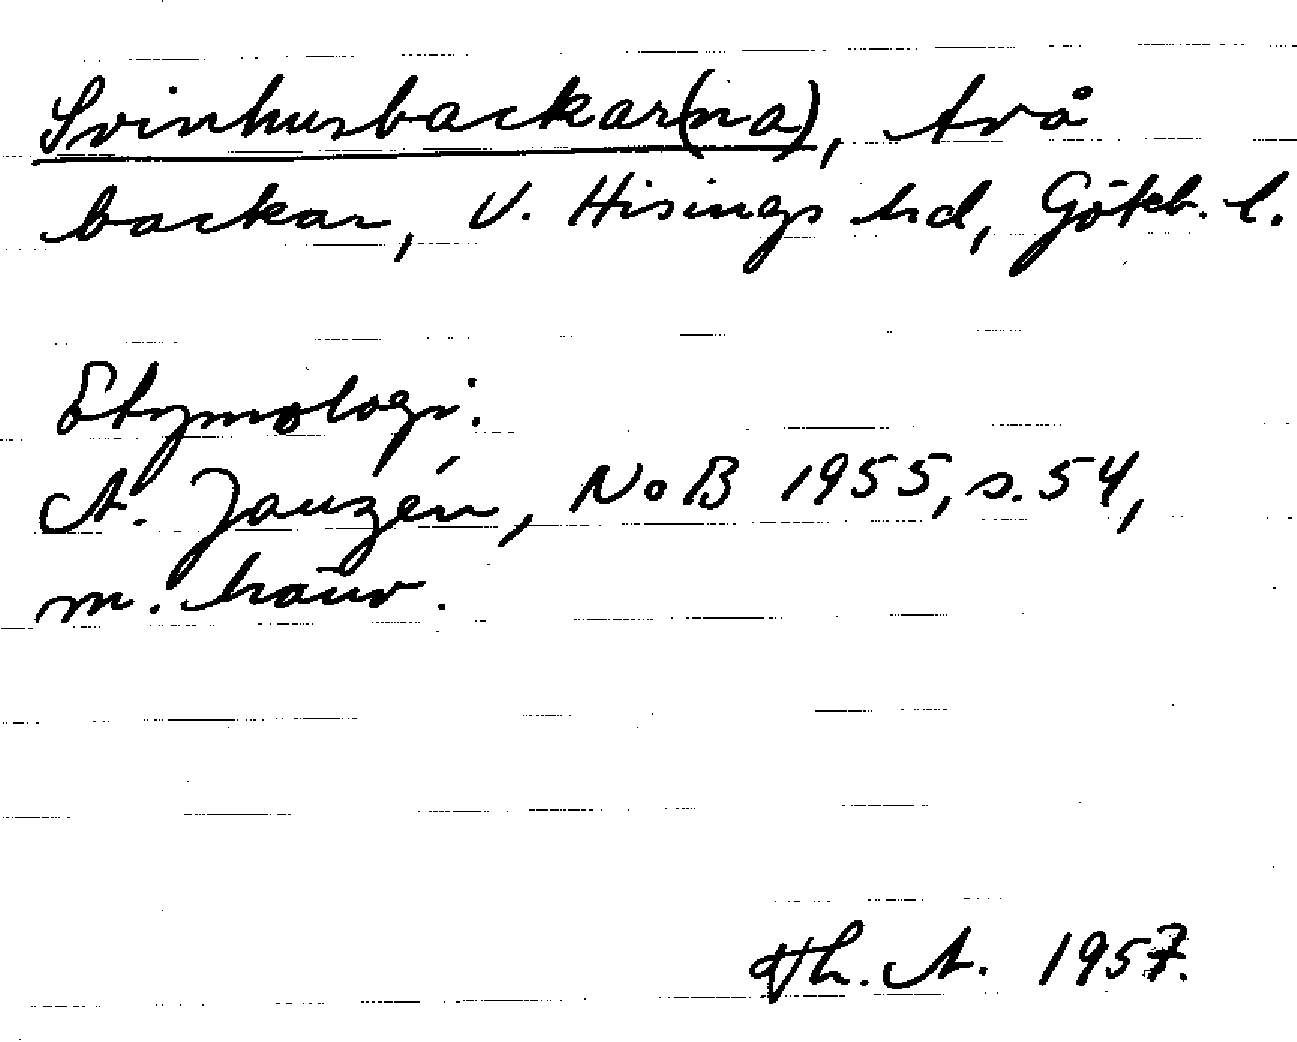 Svinhusbackar(na), två
backar, V. Hisings hd, Göteb. l.
Etymologi:
A. Janzén, NoB 1955, s. 54,
m. hänv.
Th. A. 1957.